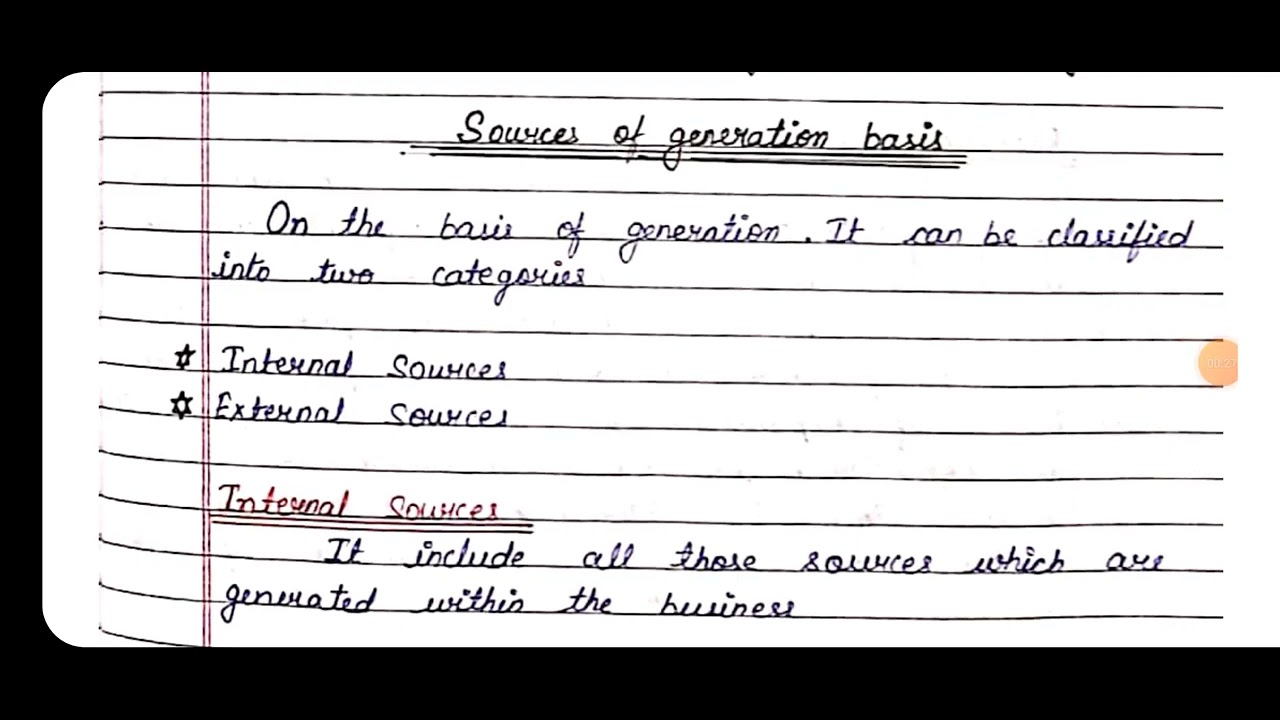 Sources of generation basis
On the basis of generation. It can be classified
into two categories
☆ Internal Sources
☆ External Sources
Internal Sources
It include all those sources which are
generated within the business